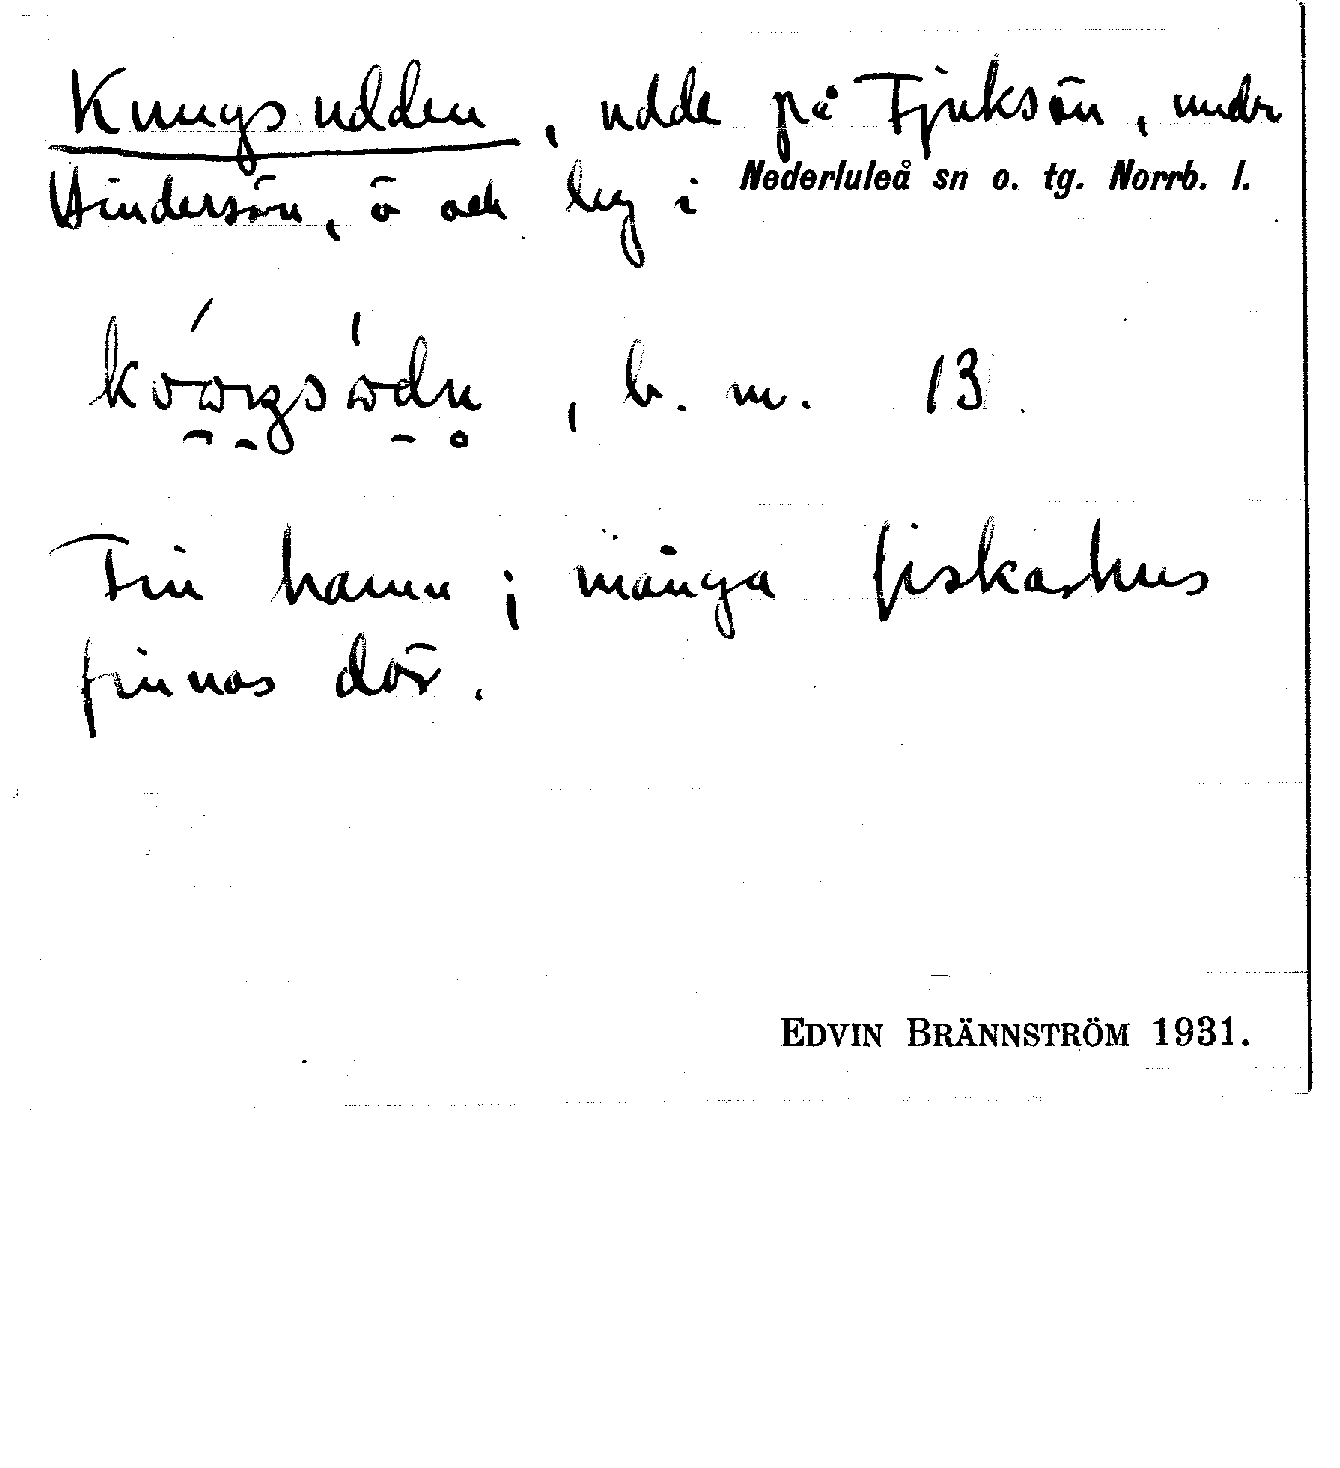 Kungsudden, udde på Tjuksön, under
Hindersön, ö och by i Nederluleå sn o. tg. Norrb. l.
, b. m. 13.
Fin hamn; många fiskarhus
finnas där.
EDVIN BRÄNNSTRÖM 1931.